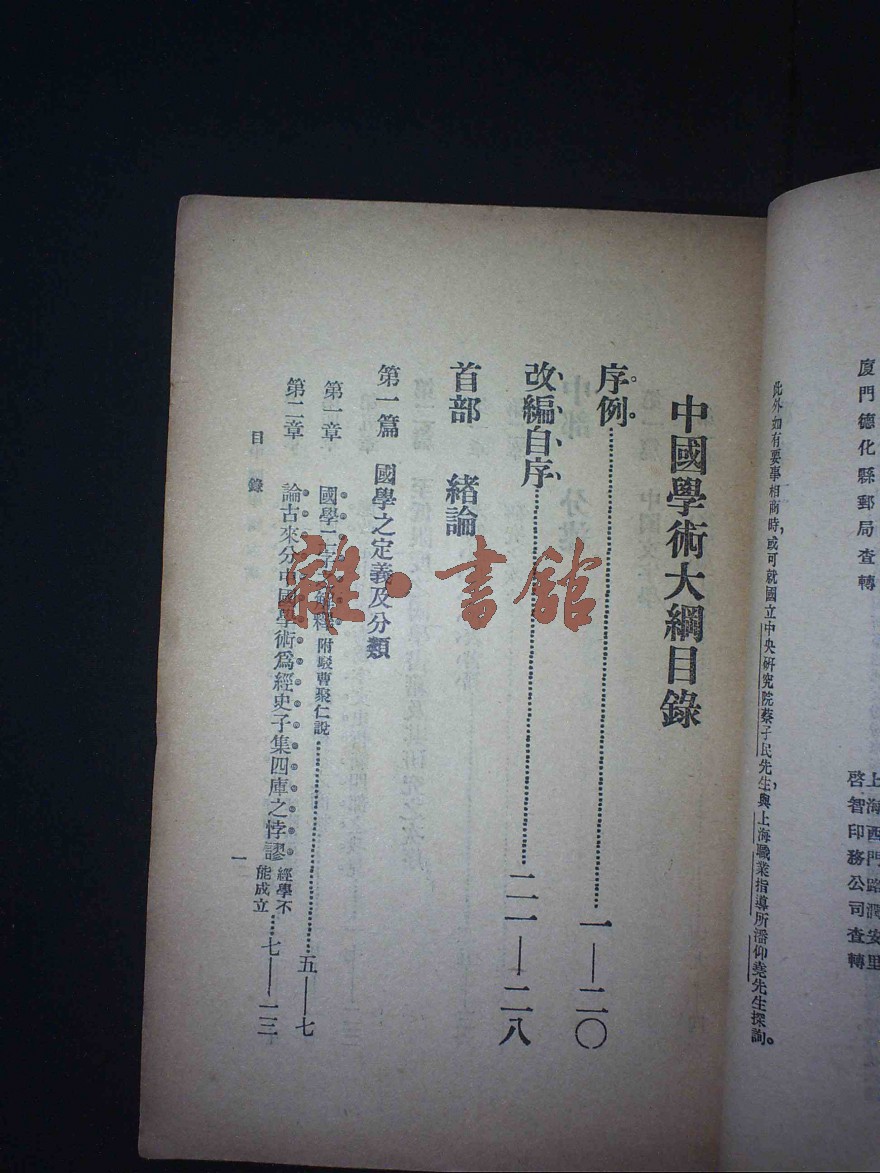 廈門德化縣郵局查轉
上海西門路潤安里
啓智印務公司查轉
此外如有要事相商時，或可就國立中央研究院蔡孑民先生，與上海職業指導所潘仰堯先生探詢。
中國學術大綱目錄
序例⋯⋯一—二〇
改編自序⋯⋯二一—二八
首部　緒論
第一篇　國學之定義及分類
第一章　國學二字之解釋 附駁曹聚仁說⋯⋯五—七
第二章　論古來分中國學術為經史子集四庫之悖謬 經學不能成立⋯⋯七—一三
目錄　一
雜·書館